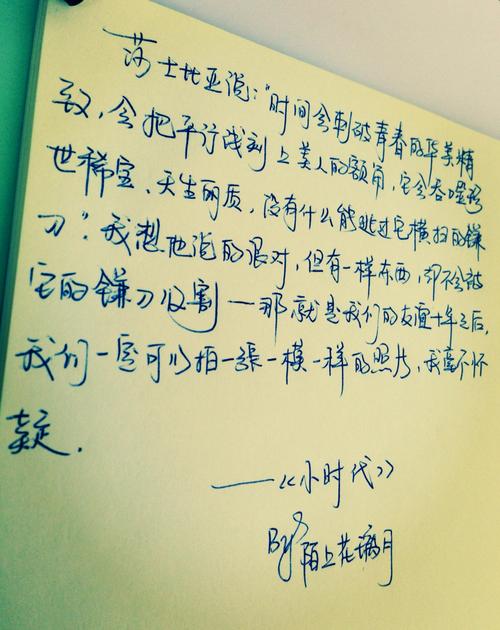 莎士比亚说:"时间会刺破青春的华美精
致,会把平行线刻上美人的额角,它会吞噬稀
世稀宝、天生丽质,没有什么能逃过它横扫的镰
刀"。我想他说的很对,但有一样东西,却不会被
它的镰刀收割——那就是我们的友谊十年之后,
我们一定可以拍一张一模一样的照片,我毫不怀
疑.
——《小时代》
By 陌上花璃月